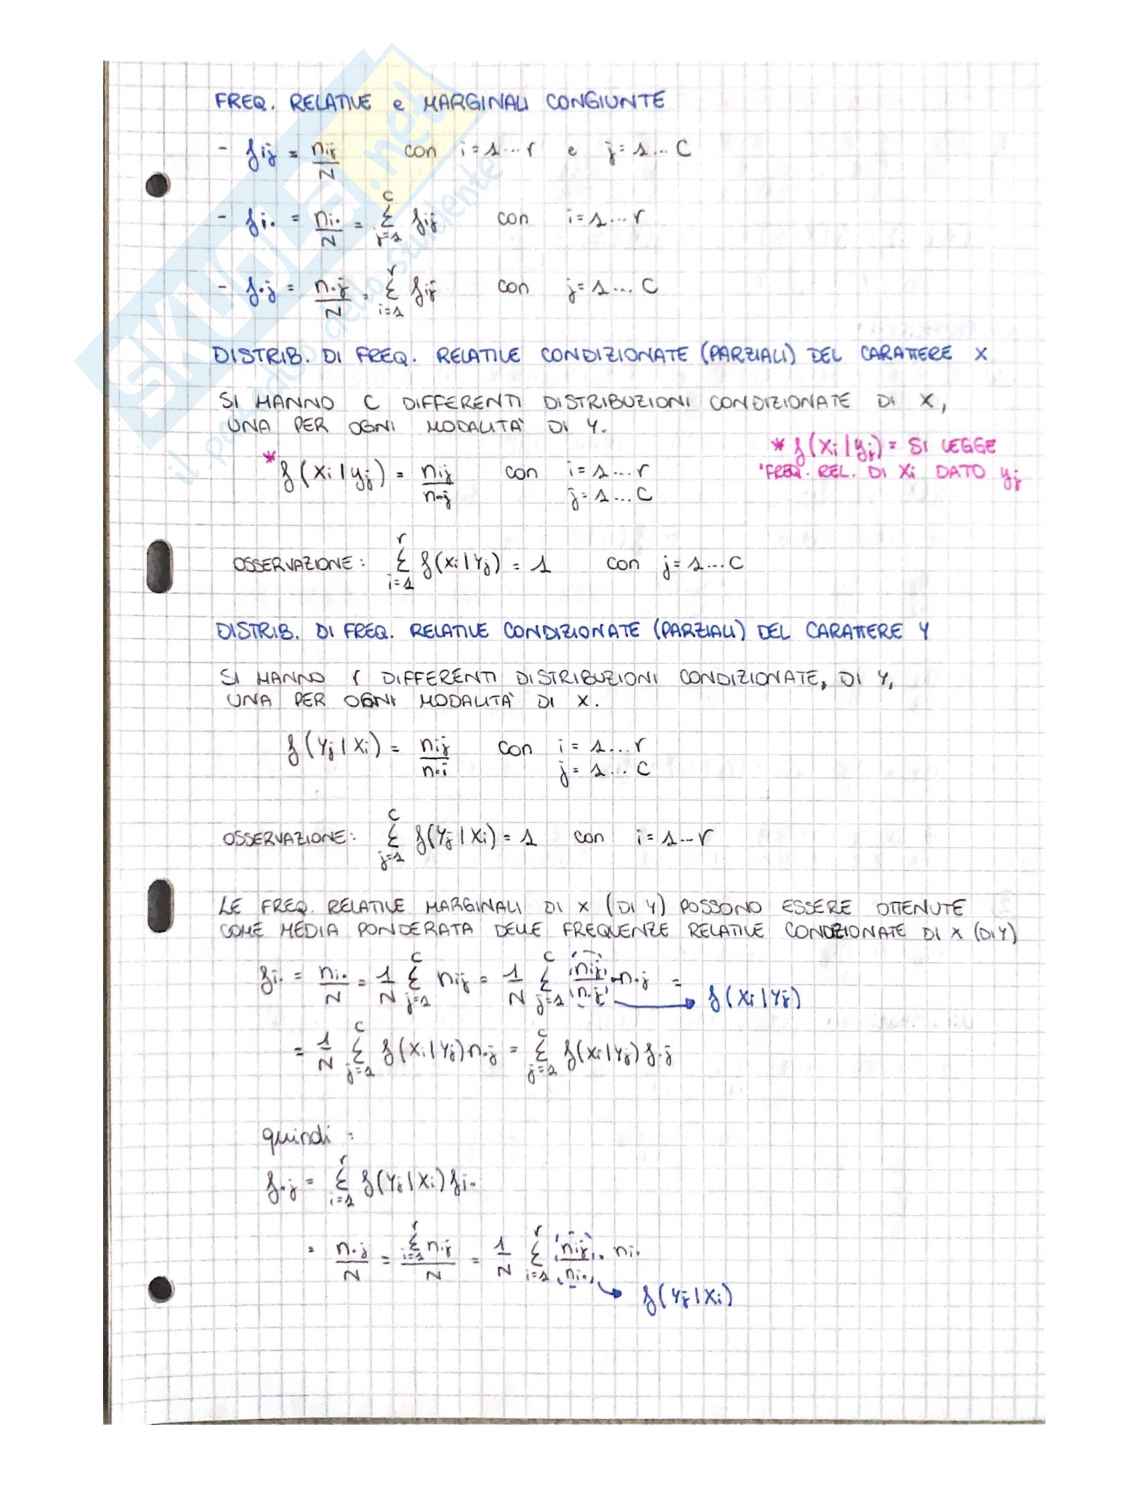 FREQ. RELATIVE e MARGINALI CONGIUNTE
- fij = nij/N con i=1...r e j=1...C
- fi. = ni./N = Σ(j=1, C) fij con i=1...r
- f.j = n.j/N = Σ(i=1, r) fij con j=1...C
DISTRIB. DI FREQ. RELATIVE CONDIZIONATE (PARZIALI) DEL CARATTERE X
SI HANNO C DIFFERENTI DISTRIBUZIONI CONDIZIONATE DI X,
UNA PER OGNI MODALITA' DI Y.
* f(xi|yj) = nij/n.j con i=1...r j=1...C
* f(xi|yj) = SI LEGGE
'FREQ. REL. DI Xi DATO yj
OSSERVAZIONE: Σ(i=1, r) f(xi|Yj) = 1 con j=1...C
DISTRIB. DI FREQ. RELATIVE CONDIZIONATE (PARZIALI) DEL CARATTERE Y
SI HANNO r DIFFERENTI DISTRIBUZIONI CONDIZIONATE, DI Y,
UNA PER OGNI MODALITA' DI X.
f(Yj|Xi) = nij/n.i con i=1...r j=1...C
OSSERVAZIONE: Σ(j=1, C) f(Yj|Xi) = 1 con i=1...r
LE FREQ. RELATIVE MARGINALI DI X (DI Y) POSSONO ESSERE OTTENUTE
COME MEDIA PONDERATA DELLE FREQUENZE RELATIVE CONDIZIONATE DI X (DI Y)
fi. = ni./N = 1/N Σ(j=1, C) nij = 1/N Σ(j=1, C) nij/n.j · n.j = → f(Xi|Yj)
= 1/N Σ(j=1, C) f(Xi|Yj) n.j = Σ(j=1, C) f(Xi|Yj) f.j
quindi:
f.j = Σ(i=1, r) f(Yj|Xi) fi.
= n.j/N = Σ(i=1, r) nij/N = 1/N Σ(i=1, r) nij/ni. · ni.
→ f(Yj|Xi)
SKUOLA.net
il paradiso dello studente